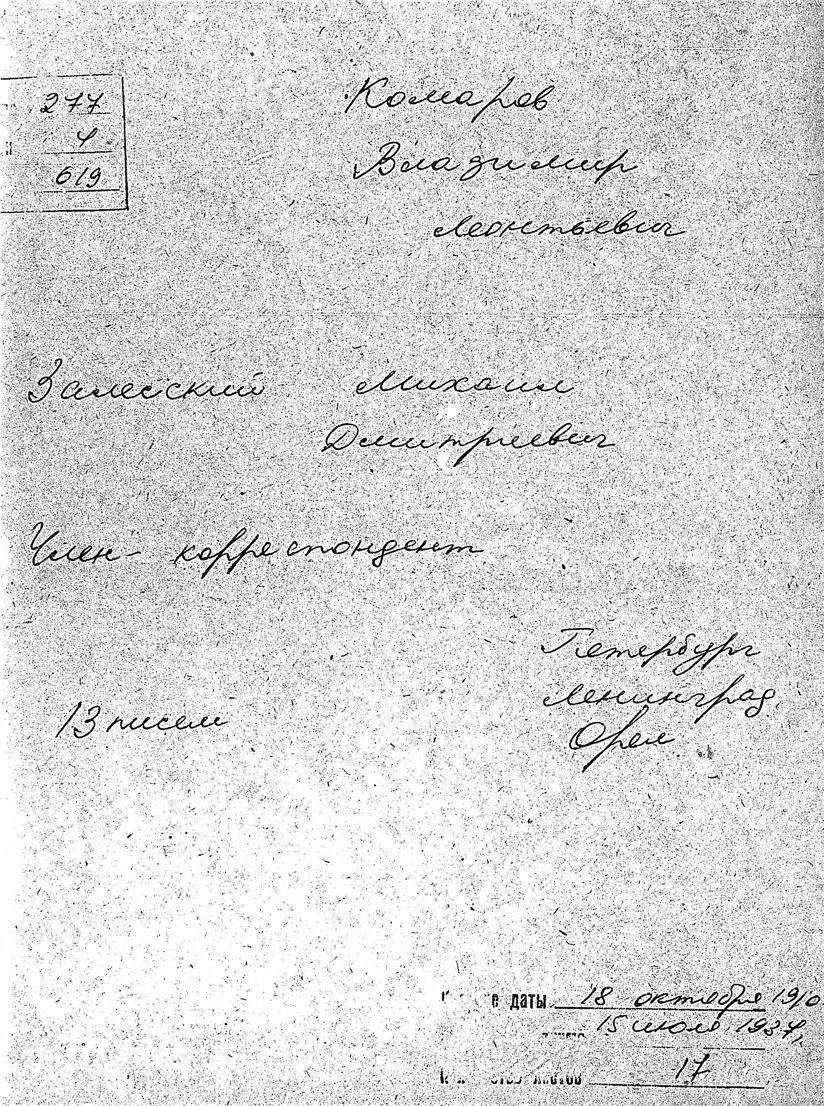 277
4
619
Комаров
Владимир
Леонтьевич
Залесский Михаил
Дмитриевич
Член-корреспондент
Петербург
Ленинград
Орел
13 писем
е даты 18 октября 1910
15 июля 1934,
17